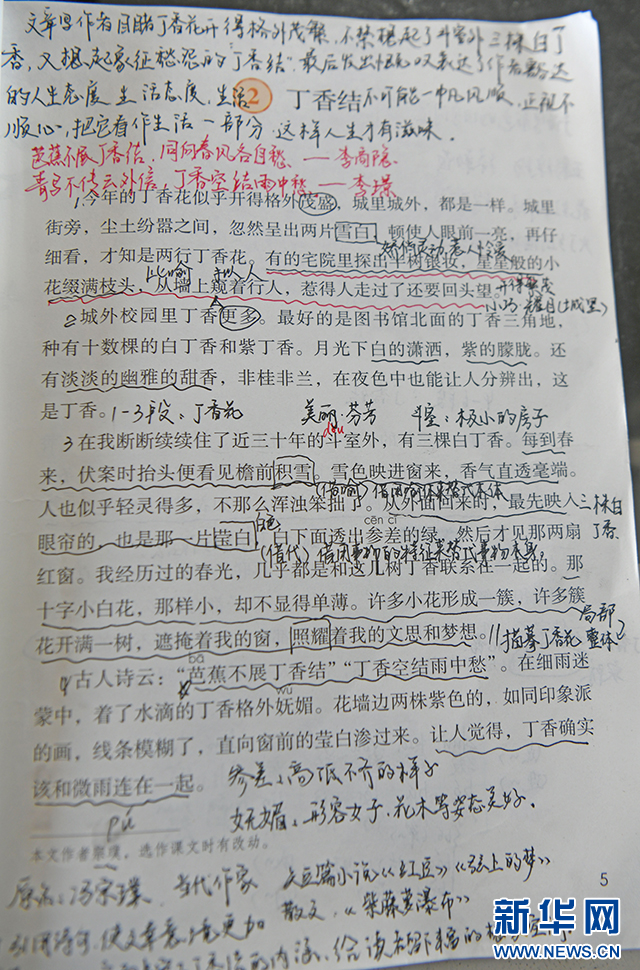 文章写作者目睹丁香花开得格外茂盛,不禁想起了斗室外三棵白丁
香,又想起象征愁怨的"丁香结",最后发出 表达了作者豁达
的人生态度 生活态度,生活
2 丁香结 不可能一帆风顺,正视不
顺心,把它看作生活一部分 这样人生才有滋味。
芭蕉不展丁香结,同向春风各自愁 —李商隐
青鸟不传云外信,丁香空结雨中愁 —李璟
1今年的丁香花似乎开得格外茂盛,城里城外,都是一样。城里
街旁,尘土纷嚣之间,忽然呈出两片雪白,顿使人眼前一亮,再仔
细看,才知是两行丁香花。有的宅院里探出半树银妆,星星般的小
花缀满枝头,从墙上窥着行人,惹得人走过了还要回头望。
2城外校园里丁香更多。最好的是图书馆北面的丁香三角地,
种有十数棵的白丁香和紫丁香。月光下白的潇洒,紫的朦胧。还
有淡淡的幽雅的甜香,非桂非兰,在夜色中也能让人分辨出,这
是丁香。1-3段:丁香花 美丽·芬芳 斗室:极小的房子
dǒu
3在我断断续续住了近三十年的斗室外,有三棵白丁香。每到春
来,伏案时抬头便看见檐前积雪。雪色映进窗来,香气直透毫端。
人也似乎轻灵得多,不那么浑浊笨拙了。从外面回来时,最先映入
三棵白
丁香
白色 cēn cī
眼帘的,也是那一片莹白,白下面透出参差的绿,然后才见那两扇
红窗。我经历过的春光,几乎都是和这几树丁香联系在一起的。那
十字小白花,那样小,却不显得单薄。许多小花形成一簇,许多簇
花开满一树,遮掩着我的窗,照耀着我的文思和梦想。 描摹丁香花 局部 整体
bā
4古人诗云:“芭蕉不展丁香结”“丁香空结雨中愁”。在细雨迷
wǔ
蒙中,着了水滴的丁香格外妩媚。花墙边两株紫色的,如同印象派
的画,线条模糊了,直向窗前的莹白渗过来。让人觉得,丁香确实
该和微雨连在一起。 参差:高低不齐的样子
妩媚:形容女子、花木等姿态美好。
本文作者宗璞,选作课文时有改动。
原名:冯宗璞 当代作家 短篇小说《红豆》《弦上的梦》
散文:《紫藤萝瀑布》
5
新华网
WWW.NEWS.CN